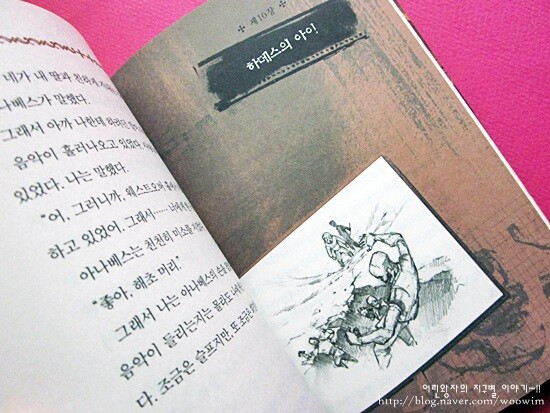 네가 내 말과 친하게
나베스가 말했다.
그래서 아까 나한테 하려던
음악이 흘러나오고 있었다.
있었다. 나는 말했다.
"어, 그러니까, 웨스트오버
하고 있었어. 그래서…… 너에게
아나베스는 천천히 미소를
"좋아, 해초 머리."
그래서 나는 아나베스의 손을
음악이 들리는지는 몰라도
다. 조금은 슬프지만, 또 조금은
제10장
하데스의 아이
어린왕자의 지구별 이야기~!!
http://blog.naver.com/woowim